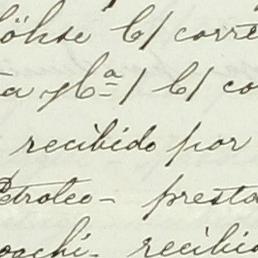 öhse C/ corre
ta y Cª/ C/ co
recibido por
Petroleo- presta
oachi- recibid